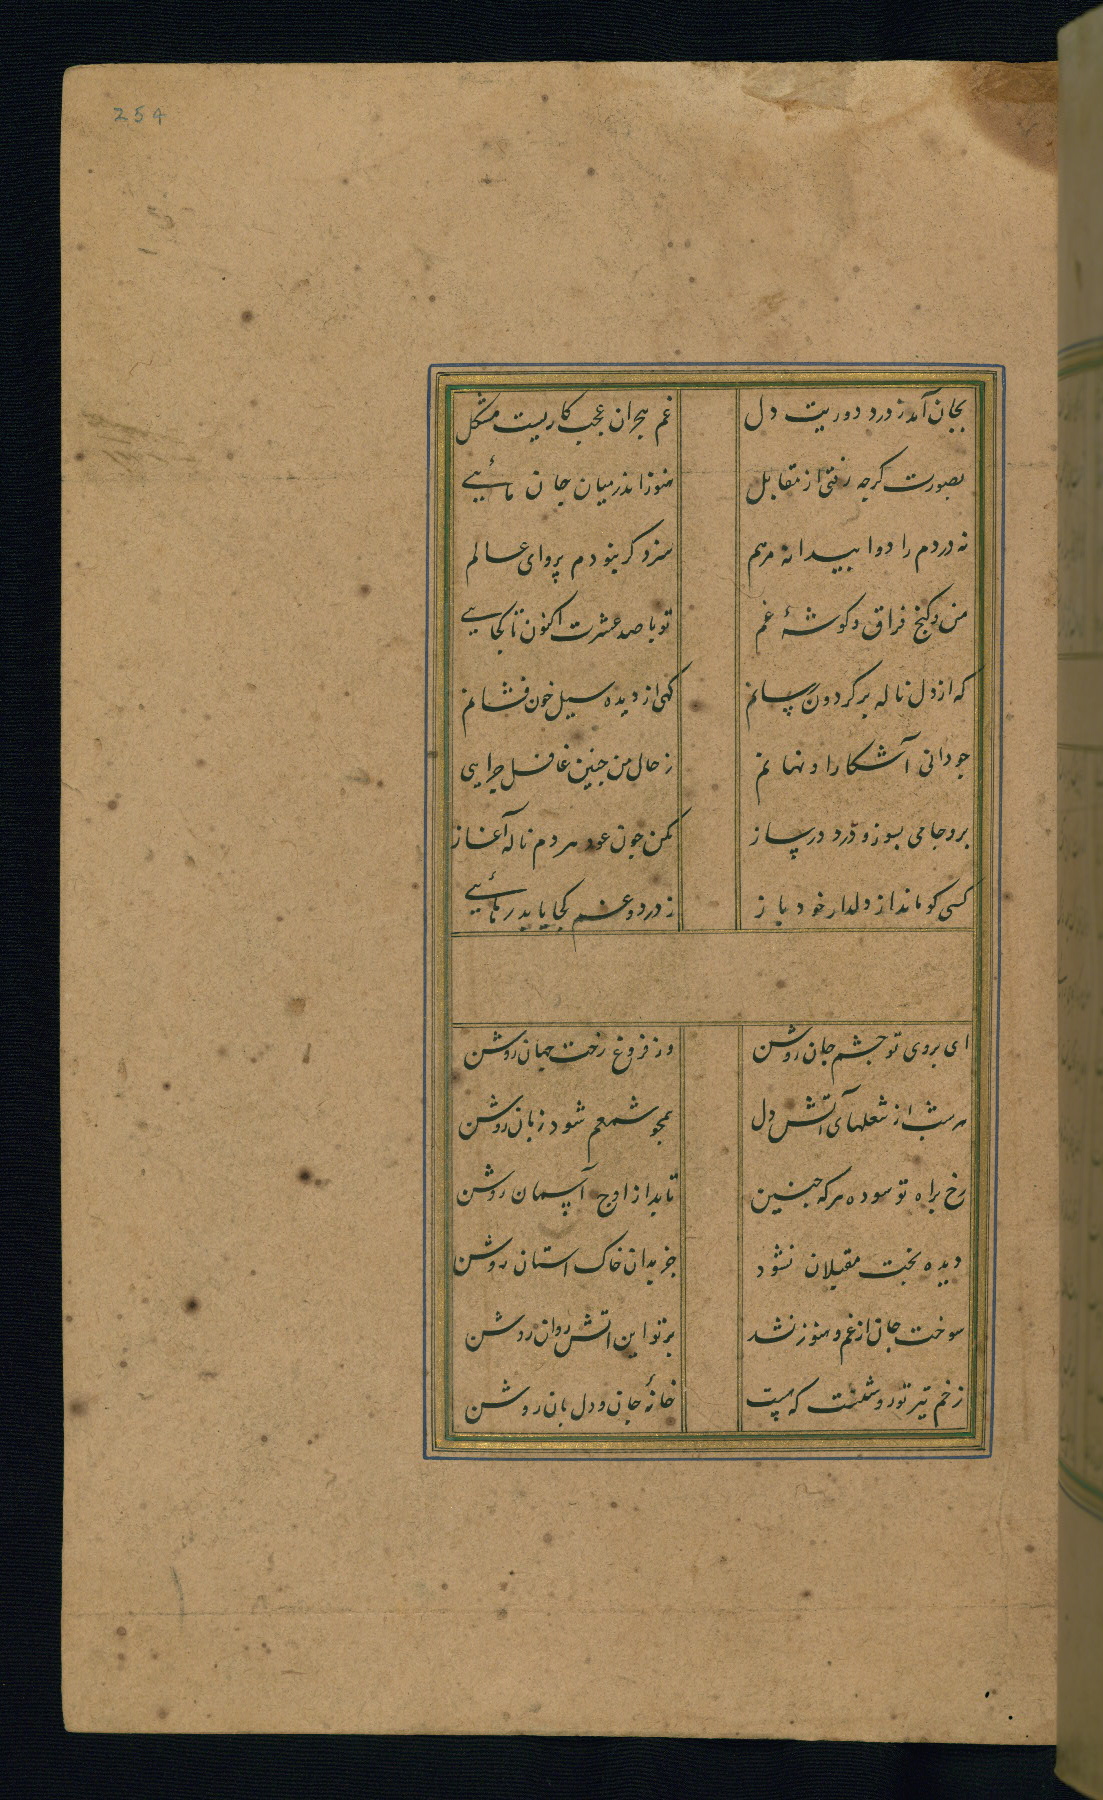 254
بجان آمد ز درد دوریت دل
غم هجران عجب کاریست مشکل
بصورت کرچه رفتی از مقابل
هنوز اندر میان جان مائیی
نه دردم را دوا پیدا نه مرهم
سزد کر نبودم پروای عالم
من و کنج فراق و کوشهٔ غم
تو با صد عشرت اکنون تا کجایی
که از دل ناله بر کردون رسانم
کهی از دیده سیل خون فشانم
جو دانی آشکارا و نهانم
ز حال من جنین غافل جرایی
برو جامی بسوز و درد در ساز
مکن جون عود هر دم ناله آغاز
کسی کو ماند از دلدار خود باز
ز درد و غم کجا یابد رهائیی
ای بروی تو جشم جان روشن
وز فروغ رخت جهان روشن
هر شب از شعلهای آتش دل
همجو شمعم شود زبان روشن
رخ براه تو سوده هر که جنین
تابد از اوج آسمان روشن
دیده بخت مقبلان نشود
جز بدان خاک استان روشن
سوخت جان از غم و هنوز نشد
بر تو این اتش روان روشن
زخم تیر تو روشنست که هست
خانهٔ جان و دل بان روشن